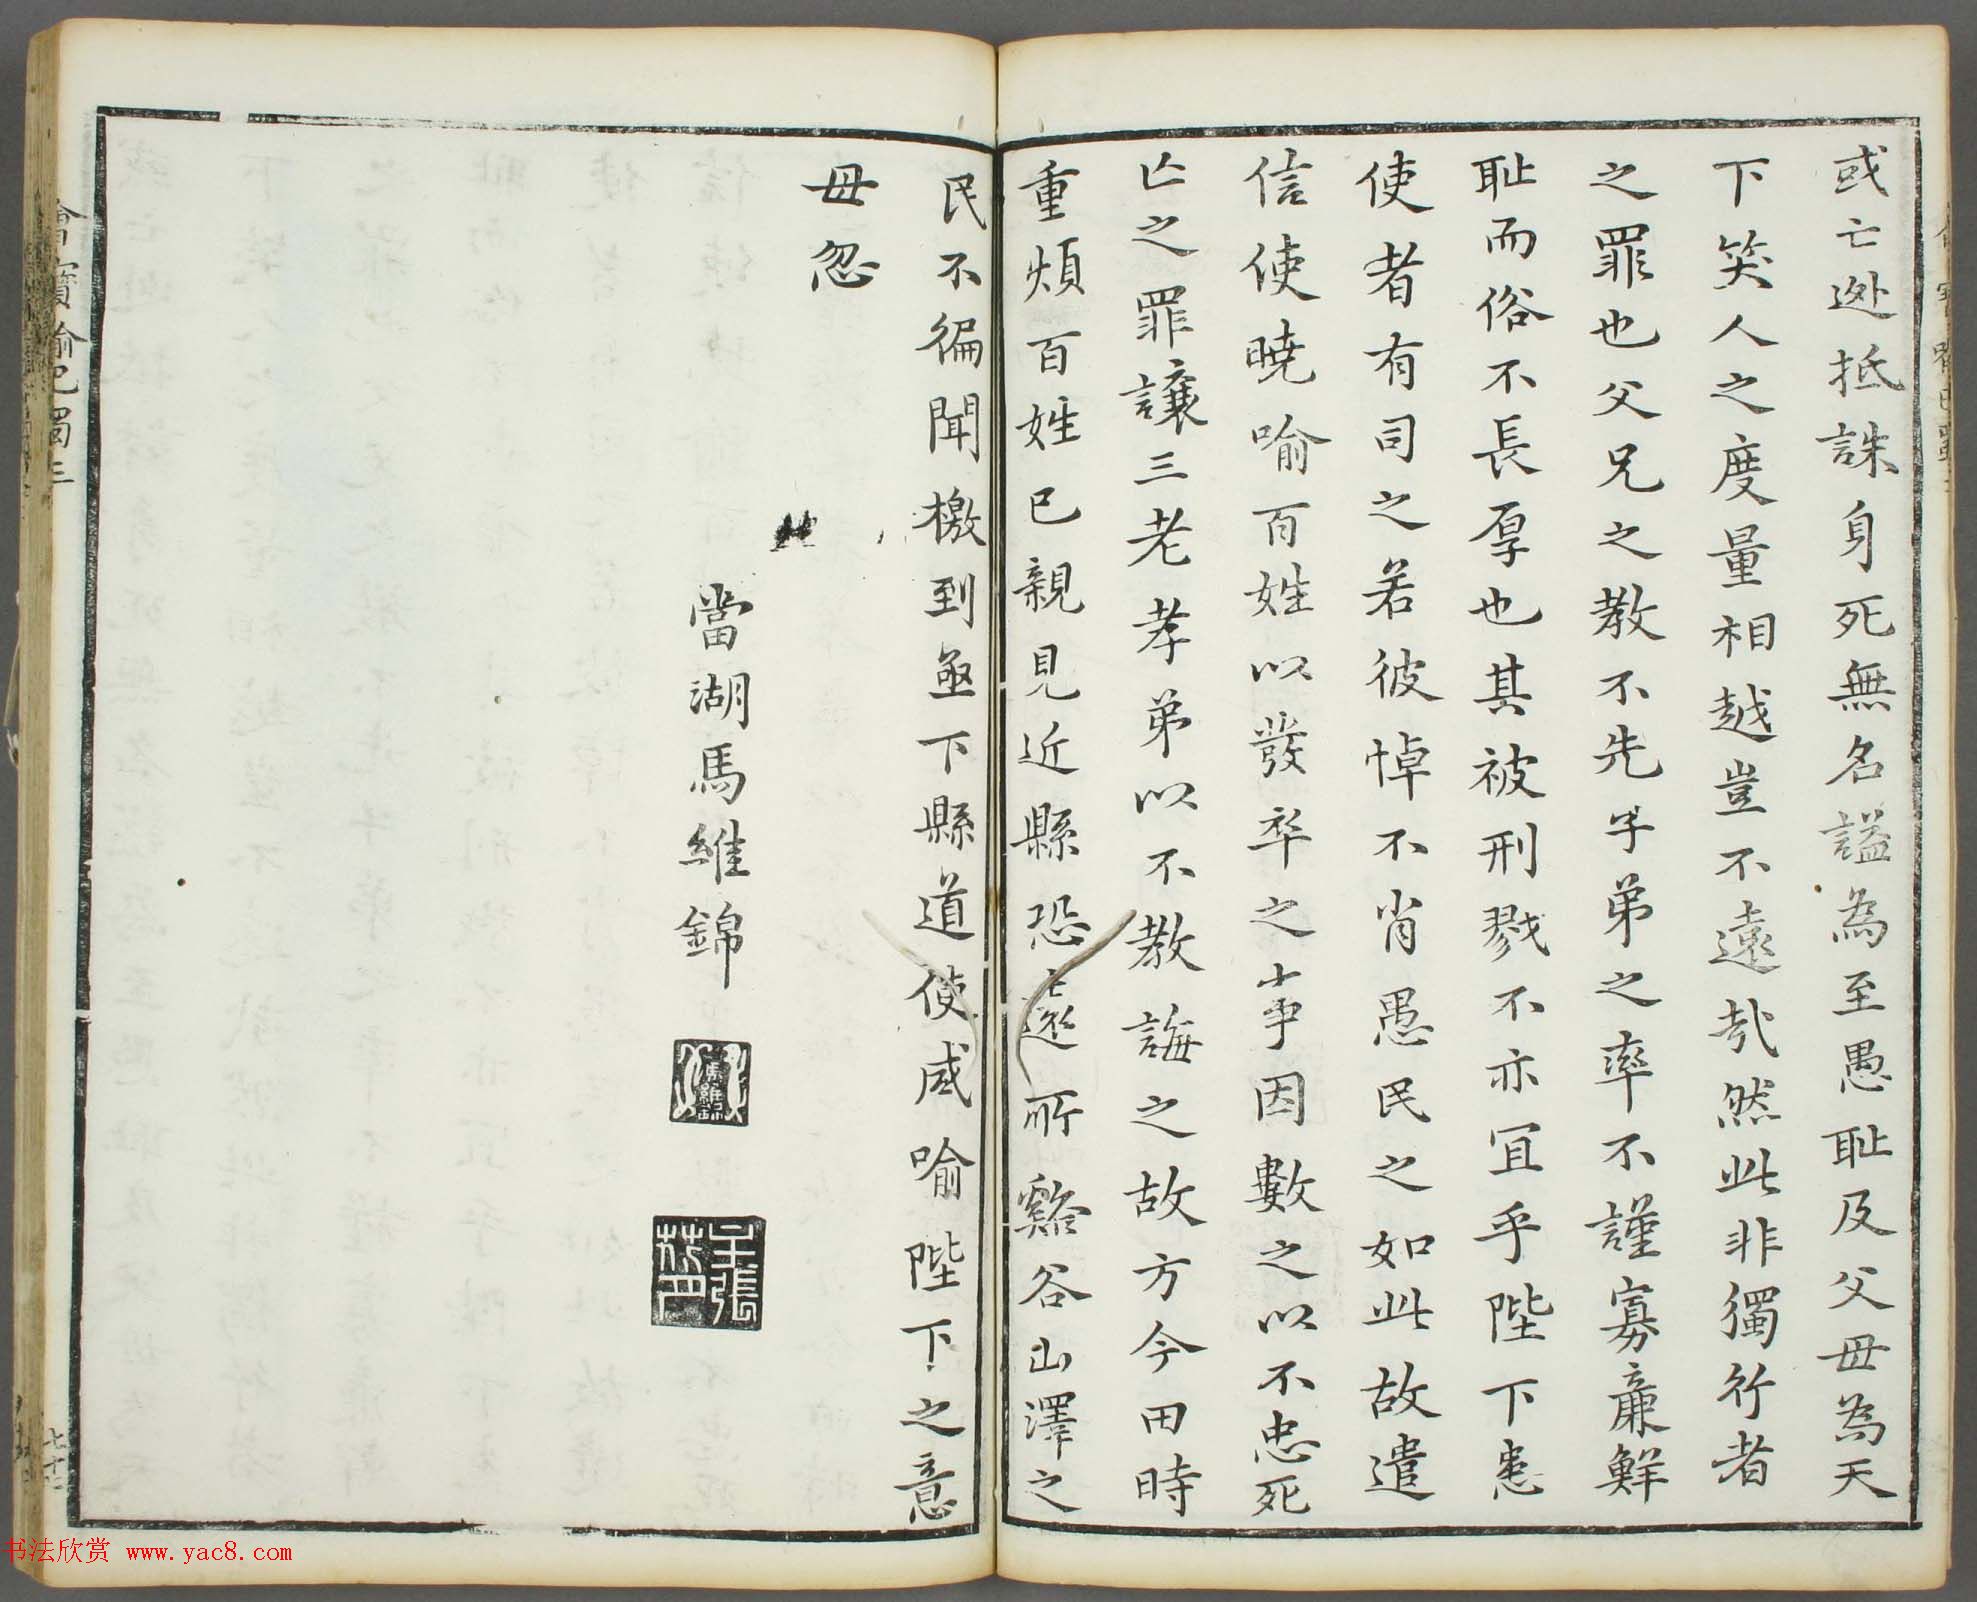 或亡逃抵誅身死無名謚為至愚恥及父母為天
下笑人之度量相越豈不遠哉然此非獨行者
之罪也父兄之教不先子弟之率不謹寡廉鮮
恥而俗不長厚也其被刑戮不亦宜乎陛下患
使者有司之若彼悼不肖愚民之如此故遣
信使曉喻百姓以發卒之事因數之以不忠死
亡之罪讓三老孝弟以不教誨之故方今田時
重煩百姓已親見近縣恐遠所谿谷山澤之
民不徧聞檄到亟下縣道使咸喻陛下之意
毋忽
當湖馬維錦
馬維錦
喻巴蜀三
七十二
书法欣赏 www.yac8.com